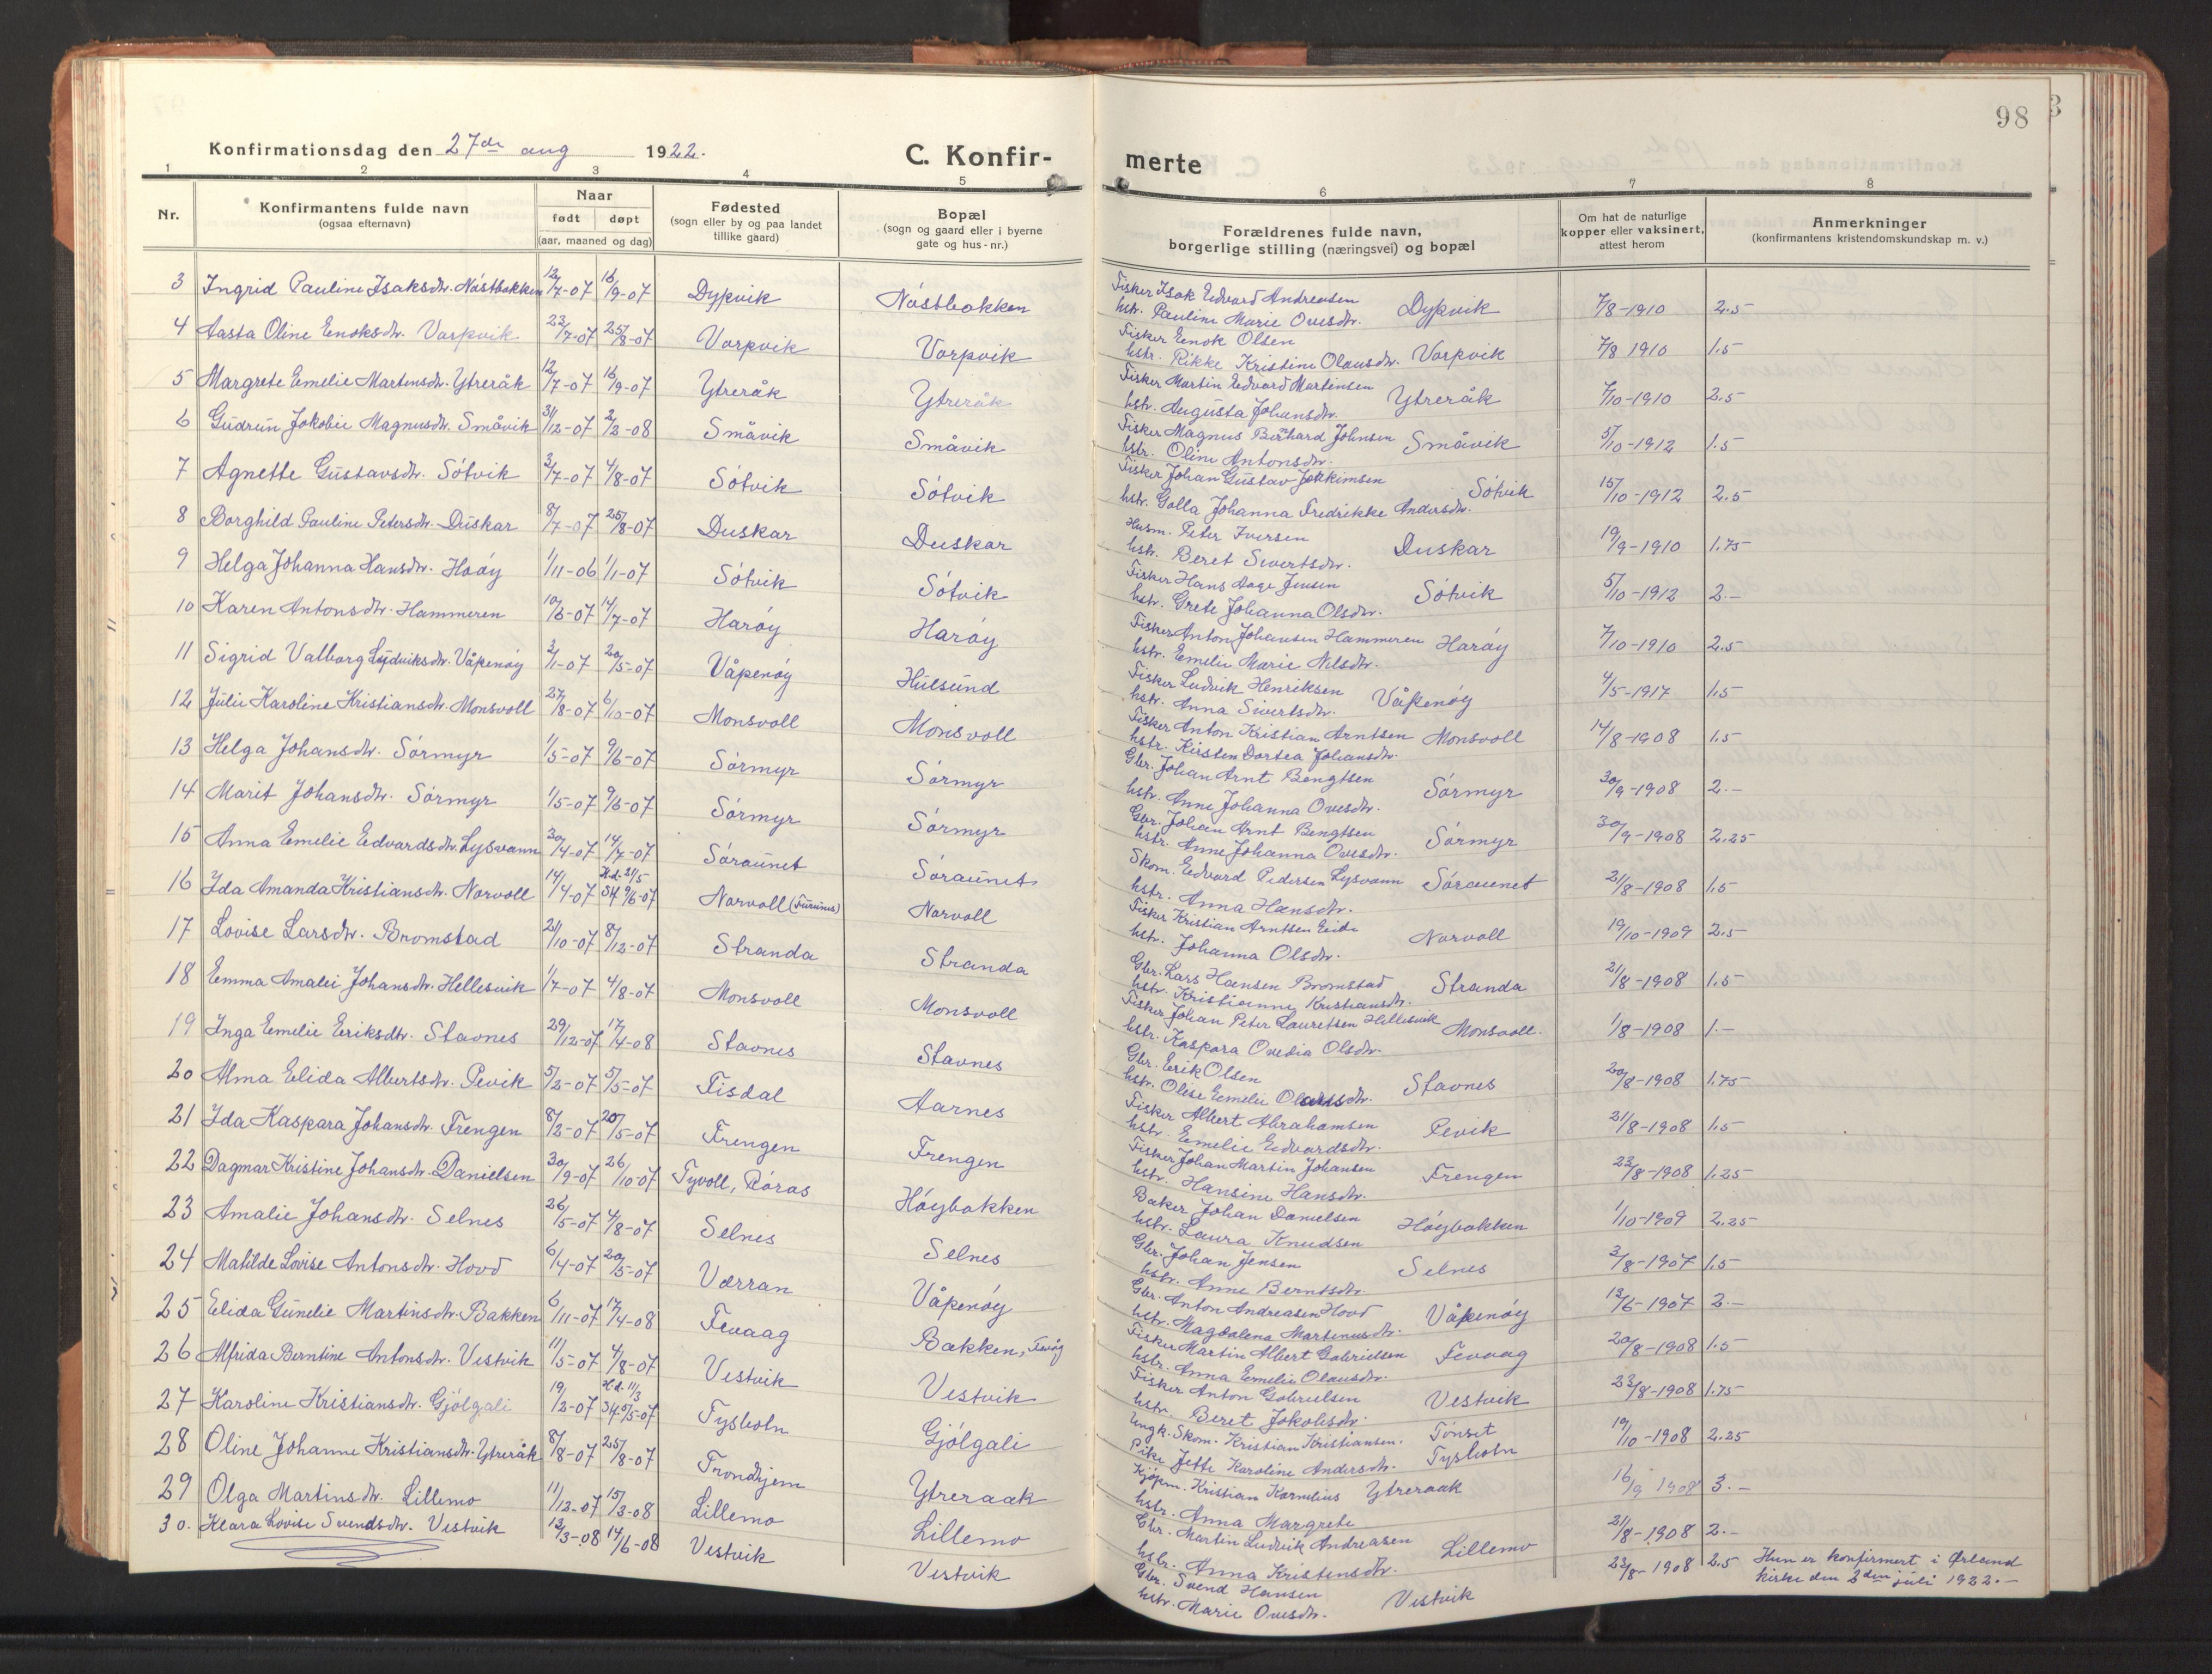 98
Konfirmationsdag den 27de aug 1922.
C. Konfir-
merte
1 2 3 4 5 6 7 8
Nr.
Konfirmantens fulde navn
(ogsaa efternavn)
Naar
født døpt
(aar, maaned og dag)
Fødested
(sogn eller by og paa landet
tillike gaard)
Bopæl
(sogn og gaard eller i byerne
gate og hus-nr.)
Forældrenes fulde navn,
borgerlige stilling (næringsvei) og bopæl
Om hat de naturlige
kopper eller vaksinert,
attest herom
Anmerkninger
(konfirmantens kristendomskundskap m. v.)
3 Ingrid Pauline Isaksdtr. Nåstbakken 12/7-07 16/9-07 Dypvik Nåstbakken Fisker Isak Edvard Andreasen
hstr. Pauline Marie Ovesdtr. Dypvik 7/8-1910 2.5
4 Aasta Oline Enoksdtr. Varpvik 23/7-07 25/8-07 Varpvik Varpvik Fisker Enok Olsen
hstr. Rikke Kristine Olausdtr. Varpvik 7/8 1910 1.5
5 Margrete Emelie Martensdtr. Ytreråk 12/7-07 16/9-07 Ytreråk Ytreråk Fisker Martin Edvard Martinsen
hstr. Augusta Johansdtr. Ytreråk 7/10-1910 2.5
6 Gudrun Jakobie Magnusdtr. Småvik 31/12-07 2/2-08 Småvik Småvik Fisker Magnus Bernhard Johnsen
hstr. Oline Antonsdtr. Småvik 5/10-1912 1.5
7 Agnette Gustavsdtr. Sótvik 3/7-07 4/8-07 Sótvik Sótvik Fisker Johan Gustav Jokkimsen
hstr. Golla Johanna Fredrikke Andersdtr. Sótvik 15/10-1912 2.5
8 Borghild Pauline Petersdtr. Duskar 8/7-07 25/8-07 Duskar Duskar Husm. Peter Iversen
hstr. Beret Sivertsdtr. Duskar 19/9-1910 1.75
9 Helga Johanna Hansdtr. Haåy 1/11-06 1/1-07 Sótvik Sótvik Fisker Hans Aage Jensen
hstr. Grete Johanna Olsdtr. Sótvik 5/10-1912 2.-
10 Karen Antonsdtr. Hammeren 10/6-07 14/7-07 Haróy Haróy Fisker Anton Johansen Hammeren
hstr. Emelie Marie Nilsdtr. Haróy 7/10-1910 2.5
11 Sigrid Valborg Ludviksdtr. Våpenóy 2/1-07 20/5-07 Våpenóy Hulsund Fisker Ludvik Henriksen
hstr. Anna Sivertsdtr. Våpenóy 4/5-1917 1.5
12 Julie Karoline Kristiansdtr. Monsvoll 27/8-07 6/10-07 Monsvoll Monsvoll Fisker Anton Kristian Arntsen
hstr. Kirsten Dortea Johansdtr. Monsvoll 14/8-1908 1.5
13 Helga Johansdtr. Sórmyr 1/5-07 9/6-07 Sórmyr Sórmyr Gbr. Johan Arnt Bengtsen
hstr. Anne Johanna Ovesdtr. Sórmyr 30/9-1908 2.-
14 Marit Johansdtr. Sórmyr 1/5-07 9/6-07 Sórmyr Sórmyr Gbr. Johan Arnt Bengtsen
hstr. Anne Johanna Ovesdtr. Sórmyr 30/9-1908 2.25
15 Anna Emelie Edvardsdtr. Lysvann 30/4-07 14/7-07 Sóraunet Sóraunet Skom. Edvard Pedersen Lysvann
hstr. Anna Hansdtr. Sóraunet 21/8-1908 1.5
16 Ida Amanda Kristiansdtr. Norvoll 14/4-07 H.d. 21/5 St 9/6-07 Norvoll (Furunes) Norvoll Fisker Kristian Arntsen Eide
hstr. Johanna Olsdtr. Norvoll 19/10-1909 2.5
17 Lovise Larsdtr. Bromstad 21/10-07 8/12-07 Stranda Stranda Gbr. Lars Hansen Bromstad
hstr. Kristianne Kristiansdtr. Stranda 21/8-1908 1.5
18 Emma Amalie Johansdtr. Hellesvik 1/7-07 4/8-07 Monsvoll Monsvoll Fisker Johan Peter Lauretsen Hellesvik
hstr. Kaspara Ovedia Olsdtr. Monsvoll. 1/8-1908 1.-
19 Inga Emelie Eriksdtr. Stavnes 29/12-07 17/4-08 Stavnes Stavnes Gbr. Erik Olsen
hstr. Olise Emelie Olausdtr. Stavnes 20/8-1908 1.75
20 Alma Elida Albertsdtr. Pevik 5/2-07 5/5-07 Tisdal Aarnes Fisker Albert Abrahamsen
hstr. Emelie Edvardsdtr. Pevik 21/8-1908 1.5
21 Ida Kaspara Johansdtr. Frengen 8/2-07 20/5-07 Frengen Frengen Fisker Johan Martin Johansen
hstr. Hansine Hansdtr. Frengen 22/8-1908 1.25
22 Dagmar Kristine Johansdtr. Danielsen 30/9-07 26/10-07 Tyvoll, Róras Hóybakken Baker Johan Danielsen
hstr. Laura Knudsen Hóybakken 1/10-1909 2.25
23 Amalie Johansdtr. Selnes 26/5-07 4/8-07 Selnes Selnes Gbr. Johan Jensen
hstr. Anne Berntsdtr. Selnes 3/8-1907 1.5
24 Matilde Lovise Antonsdtr. Hovd 6/4-07 20/5-07 Værran Våpenóy Gbr. Anton Andreasen Hovd
hstr. Magdalena Martenusdtr. Våpenóy 13/6-1907 2.-
25 Elida Gunelie Martinsdtr. Bakken 6/11-07 17/4-08 Fevaag Bakken, Fevåg Fisker Martin Albert Gabrielsen
hstr. Anna Emelie Olausdtr. Fevaag 20/8-1908 1.5
26 Alfrida Berntine Antonsdtr. Vestvik 11/5-07 4/8-07 Vestvik Vestvik Fisker Anton Gabrielsen
hstr. Beret Jakobsdtr. Vestvik 23/8-1908 1.75
27 Karoline Kristiansdtr. Gjólgali 19/2-07 H.d. 11/3 St. 5/5-07 Tysholn Gjólgali Ungk. Skom. Kristian Kristiansen. Tónset
Pike Jette Karoline Andersdtr. Tysholn 19/10-1908 2.25
28 Oline Johanne Kristiansdtr. Ytreråk 8/8-07 25/8-07 Trondhjem Ytreraak Kjópm. Kristian Kornelius
hstr. Anna Margrete Ytreraak 16/9 1908 3.-
29 Olga Martinsdtr. Lillemo 11/12-07 15/3-08 Lillemo Lillemo Gbr. Martin Ludvik Andreasen
hstr. Anna Kristensdtr. Lillemo 21/8-1908 2.-
30. Klara Lovise Svendsdtr. Vestvik 13/3-08 14/6-08 Vestvik Vestvik Gbr. Svend Hansen
hstr. Marie Ovesdtr. Vestvik 23/8-1908 2.5 Hun er konfirmert i Ørland
kirke den 2den juli 1922.-